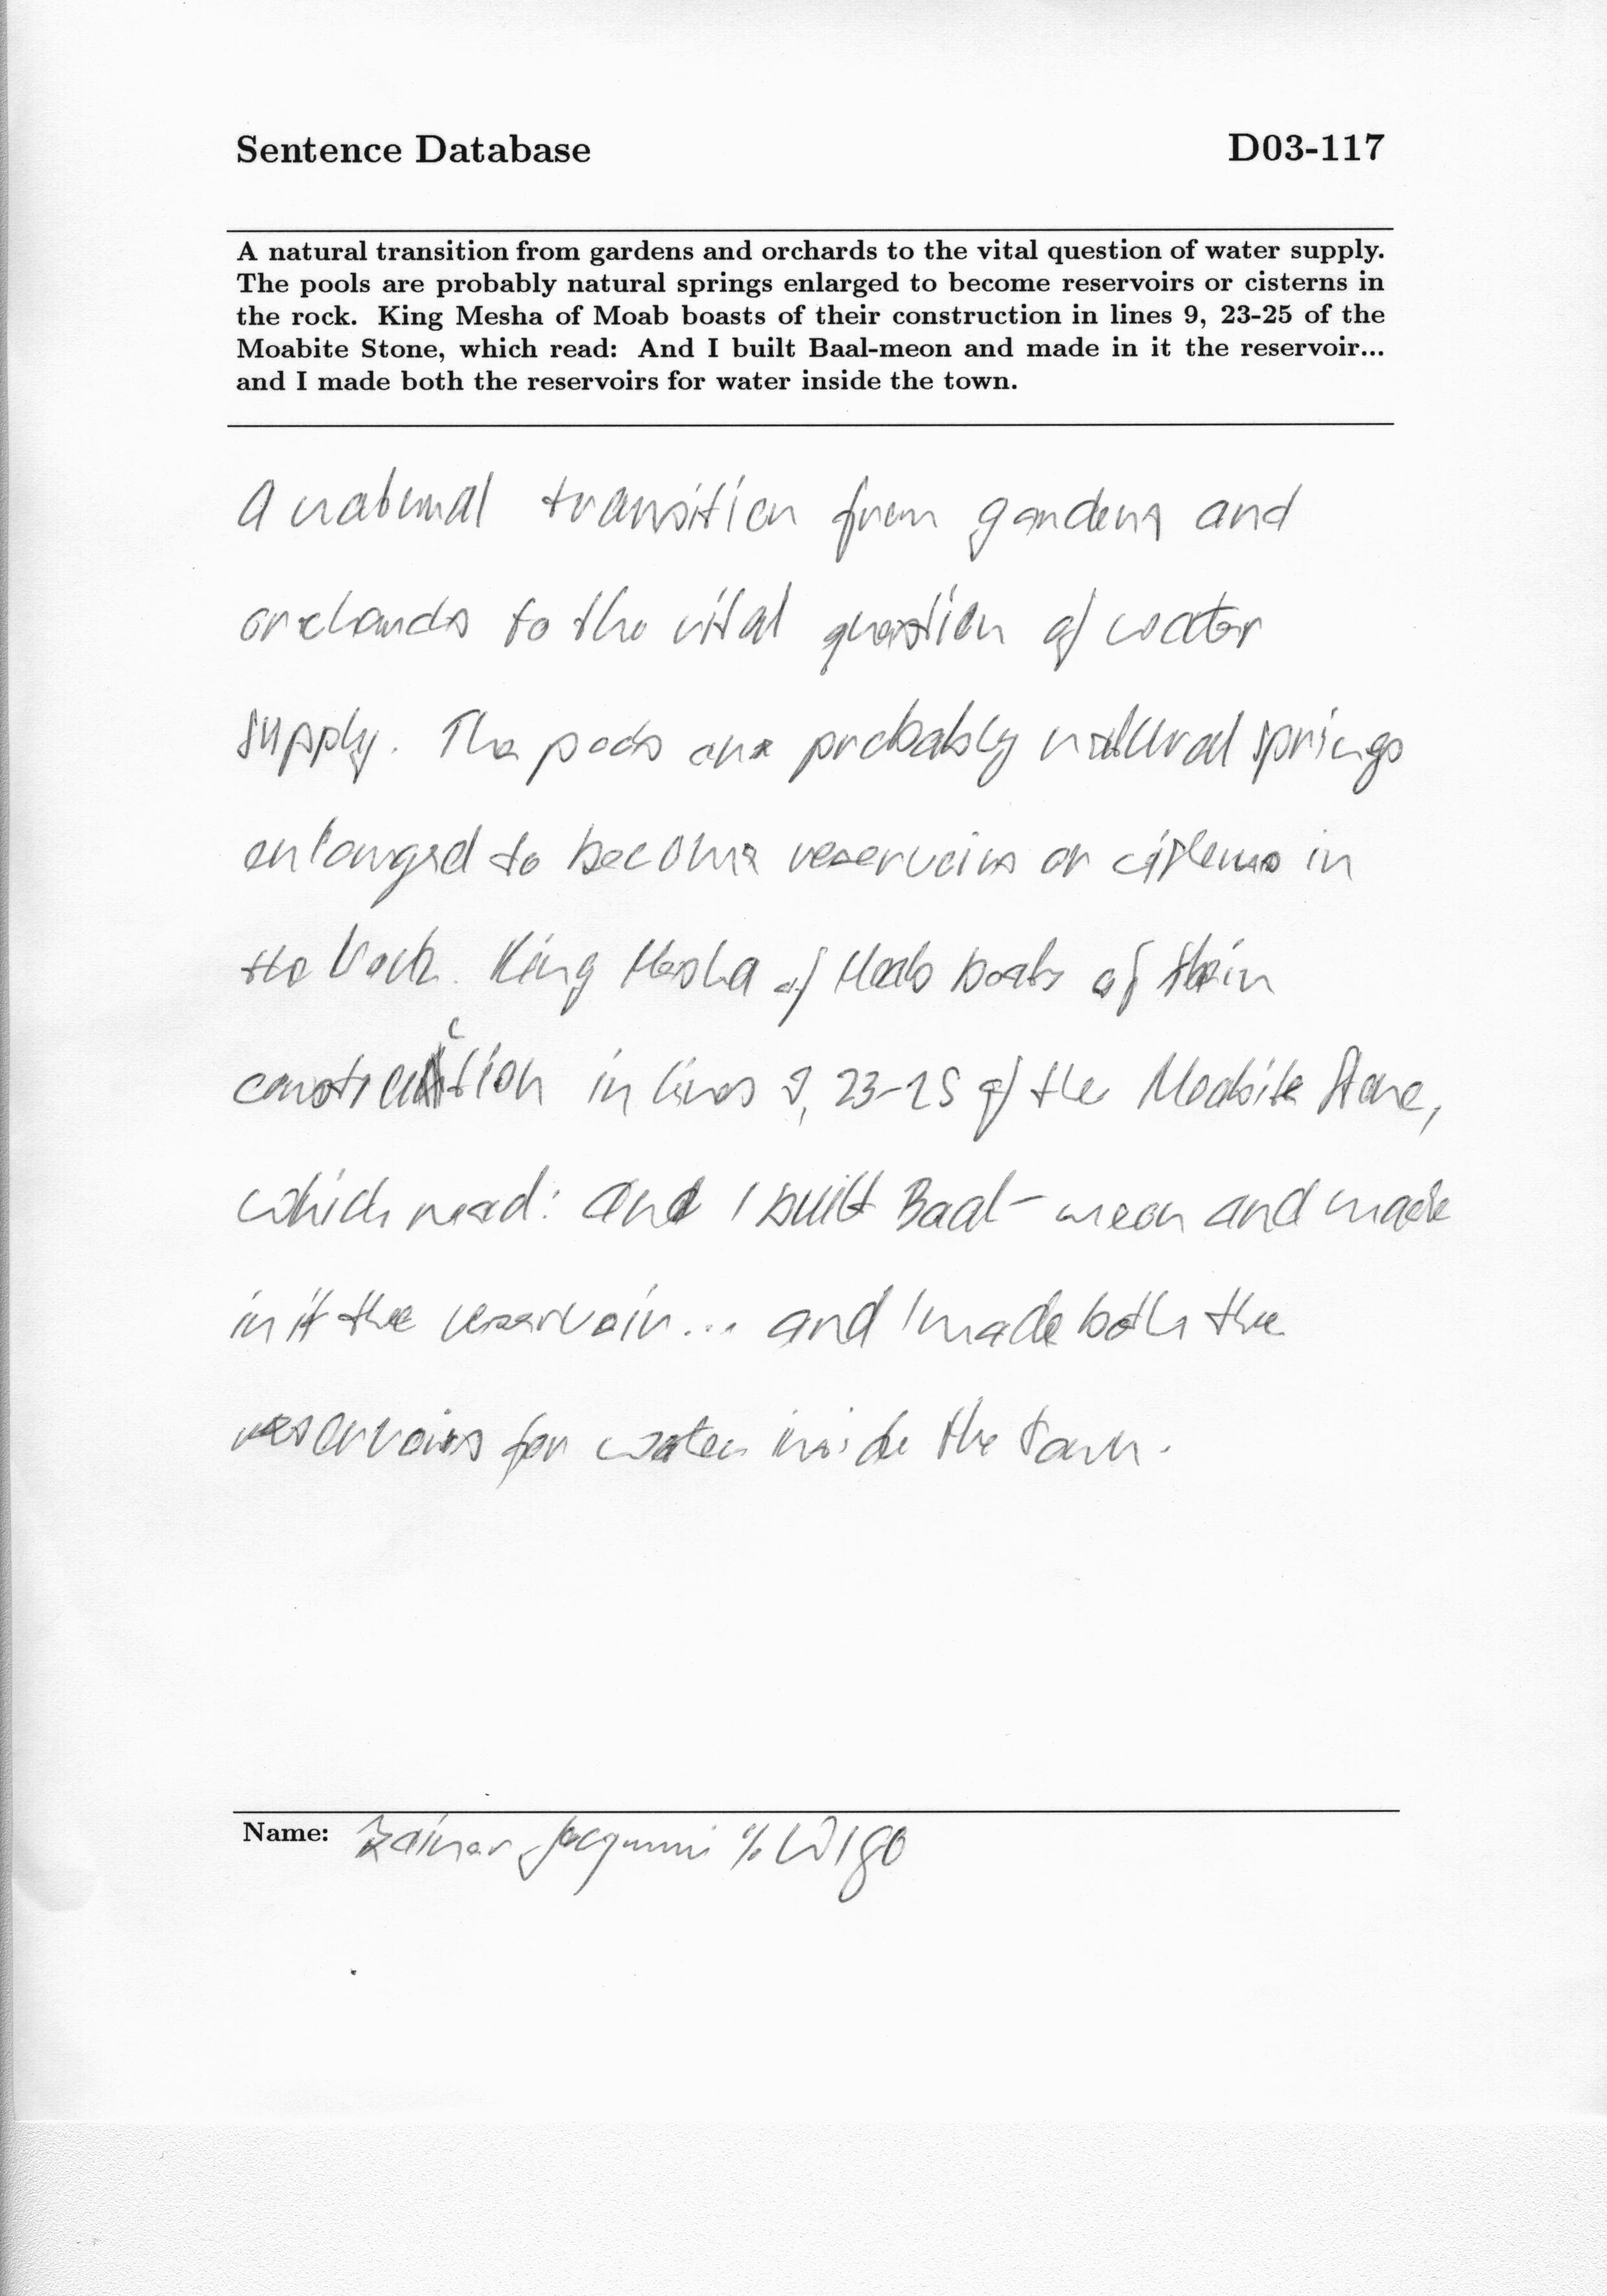 Sentence Database D03-117
A natural transition from gardens and orchards to the vital question of water supply.
The pools are probably natural springs enlarged to become reservoirs or cisterns in
the rock. King Mesha of Moab boasts of their construction in lines 9, 23-25 of the
Moabite Stone, which read: And I built Baal-meon and made in it the reservoir...
and I made both the reservoirs for water inside the town.
A natural transition from gardens and
orchards to the vital question of water
supply. The pools are probably natural springs
enlarged to become reservoirs or cisterns in
the rock. King Mesha of Moab boats of their
construction in lines 9, 23-25 of the Moabite Stone,
which read: And I built Baal-meon and made
in it the reservoir... and I made both the
reservoirs for water inside the town.
Name: